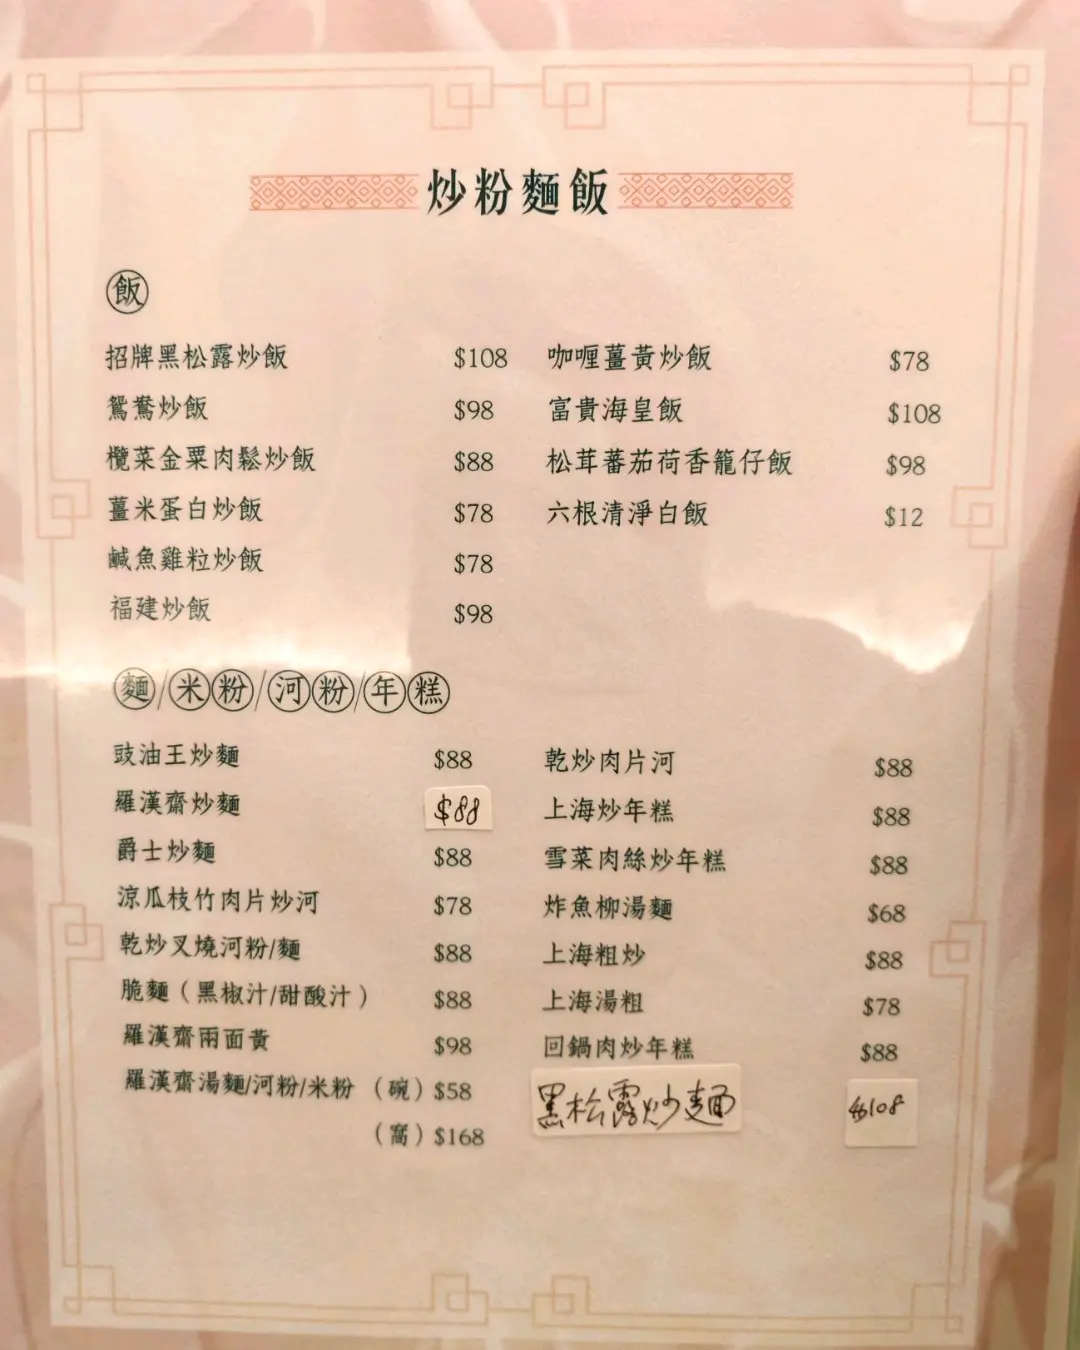 炒粉麵飯
飯
招牌黑松露炒飯 $108
鴛鴦炒飯 $98
欖菜金粟肉鬆炒飯 $88
薑米蛋白炒飯 $78
鹹魚雞粒炒飯 $78
福建炒飯 $98
咖喱薑黃炒飯 $78
富貴海皇飯 $108
松茸蕃茄荷香籠仔飯 $98
六根清淨白飯 $12
麵/米粉/河粉/年糕
豉油王炒麵 $88
羅漢齋炒麵 $88
爵士炒麵 $88
涼瓜枝竹肉片炒河 $78
乾炒叉燒河粉/麵 $88
脆麵（黑椒汁/甜酸汁） $88
羅漢齋兩面黃 $98
羅漢齋湯麵/河粉/米粉 （碗）$58
（窩）$168
乾炒肉片河 $88
上海炒年糕 $88
雪菜肉絲炒年糕 $88
炸魚柳湯麵 $68
上海粗炒 $88
上海湯粗 $78
回鍋肉炒年糕 $88
黑松露炒麵 $108